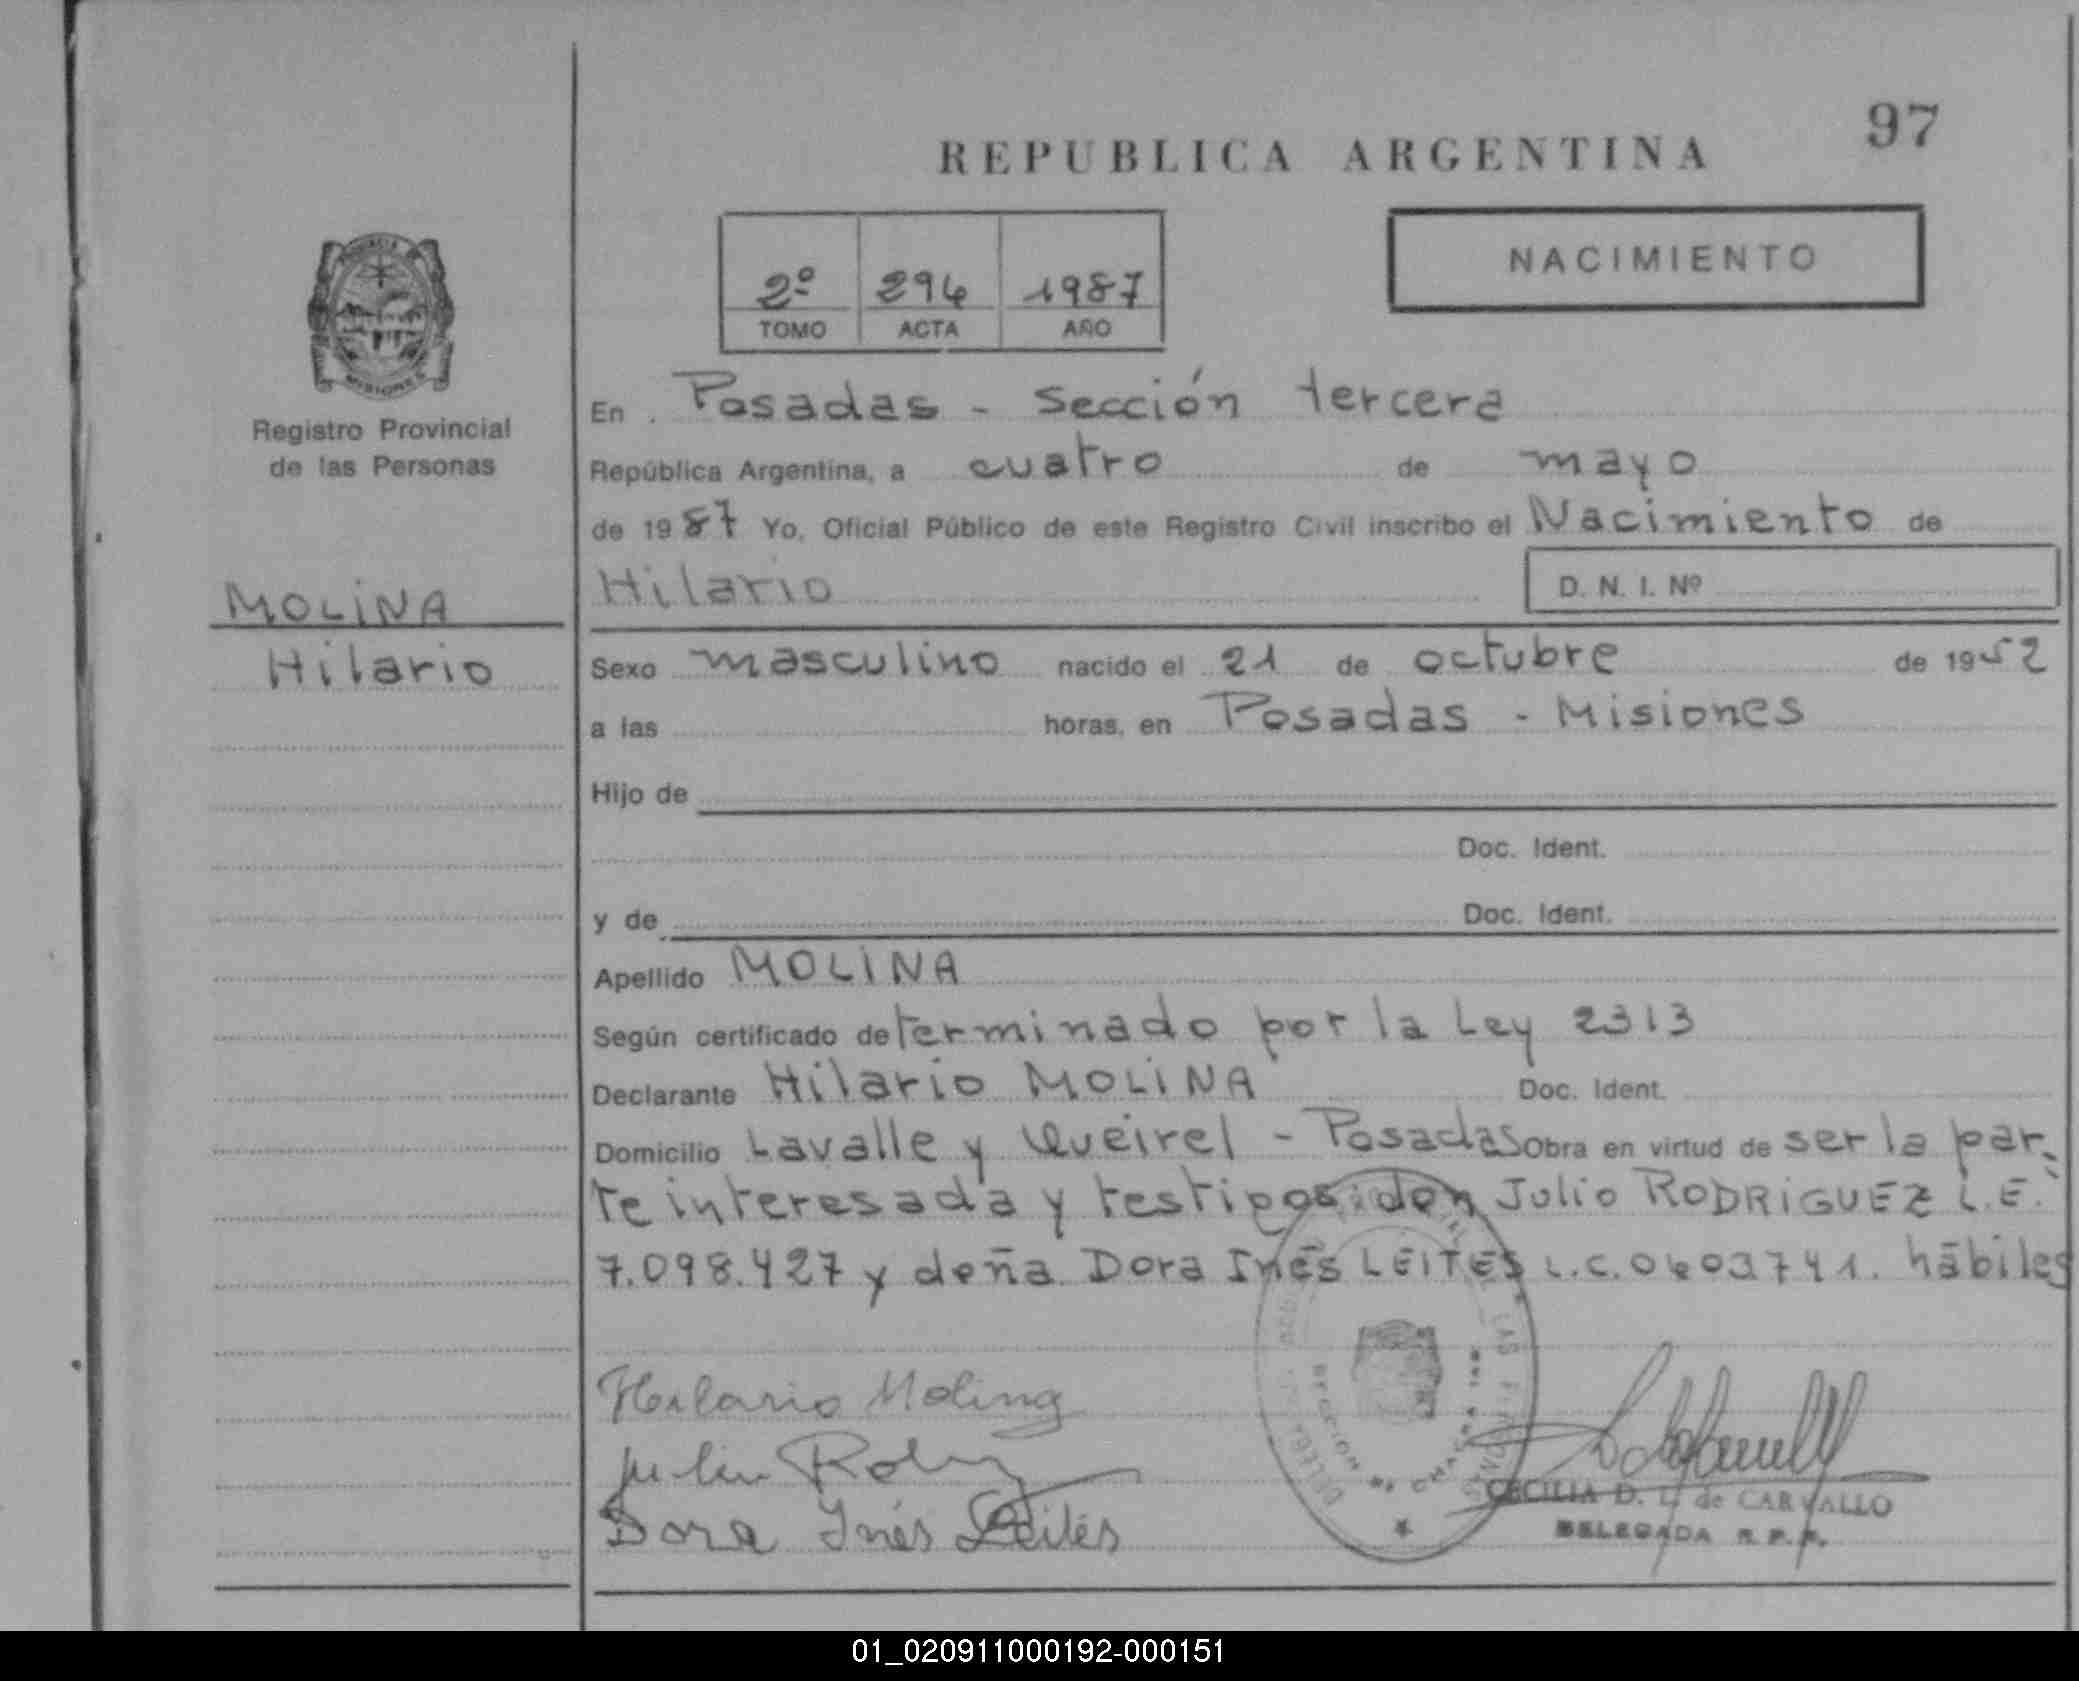 97
REPUBLICA ARGENTINA
NACIMIENTO
2º 294 1987
TOMO ACTA AÑO
MISIONES
Registro Provincial
de las Personas
MOLINA
Hilario
En Posadas - Sección tercera
República Argentina, a cuatro de mayo
de 1987 Yo, Oficial Público de este Registro Civil inscribo el Nacimiento de
Hilario D. N. I. Nº
Sexo masculino nacido el 21 de octubre de 1952
a las horas, en Posadas - Misiones
Hijo de
Doc. Ident.
y de Doc. Ident.
Apellido MOLINA
Según certificado determinado por la Ley 2313
Declarante Hilario MOLINA Doc. Ident.
Domicilio Lavalle y Queirel - Posadas Obra en virtud de ser la par-
te interesada y testigos: don Julio RODRIGUEZ L.E.
7.098.427 y doña Dora Inés LEITES L.C. hábiles
Hilario Molina
Dora Inés Leites
CECILIA D. L. de CARVALLO
DELEGADA R. P. P.
01_020911000192-000151